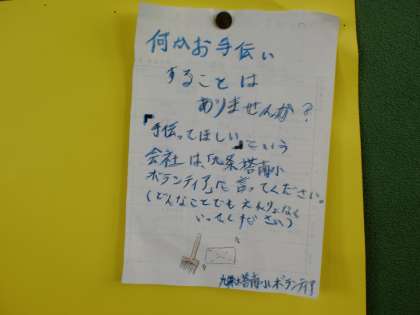 何かお手伝い
することは
ありませんか？
「手伝ってほしい」という
会社は、「九条塔南小
ボランティア」に言ってください。
（どんなことでもえんりょなく
いってください）
九条塔南小ボランティア